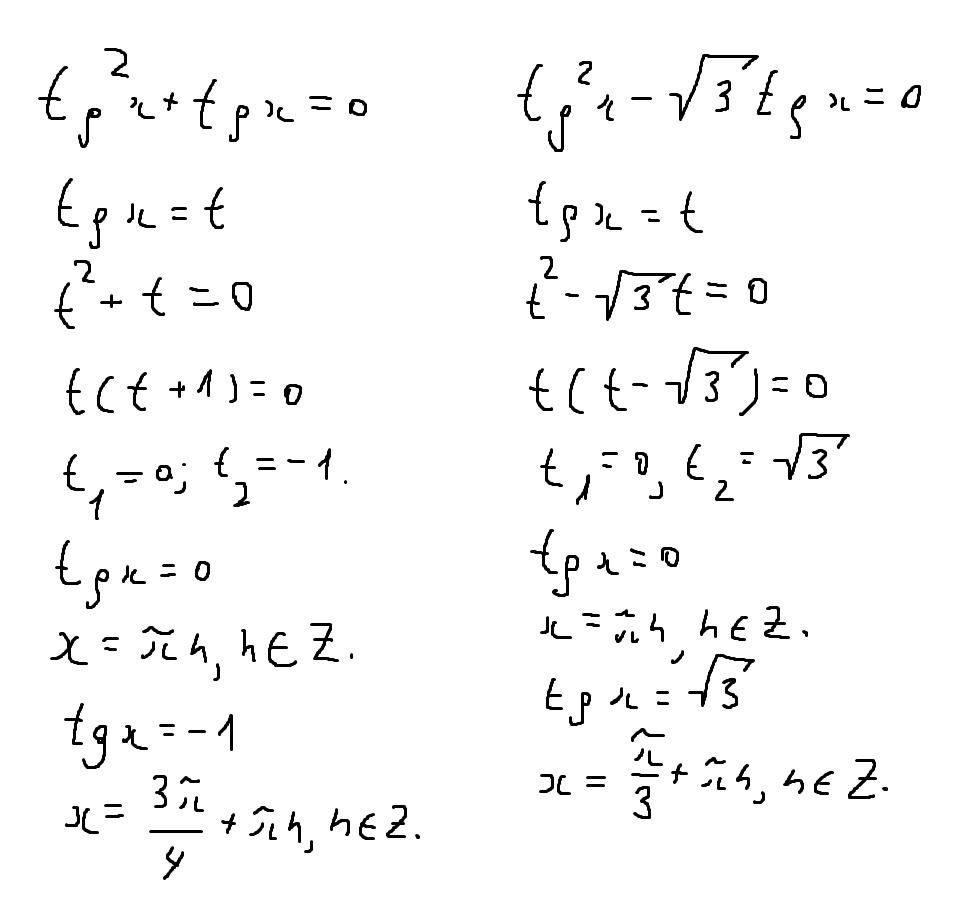 tg²x + tgx = 0
tgx = t
t² + t = 0
t(t + 1) = 0
t₁ = 0; t₂ = -1.
tgx = 0
x = πn, n ∈ Z.
tgx = -1
x = 3π/4 + πn, n ∈ Z.
tg²x - √3 tgx = 0
tgx = t
t² - √3t = 0
t(t - √3) = 0
t₁ = 0, t₂ = √3
tgx = 0
x = πn, n ∈ Z.
tgx = √3
x = π/3 + πn, n ∈ Z.